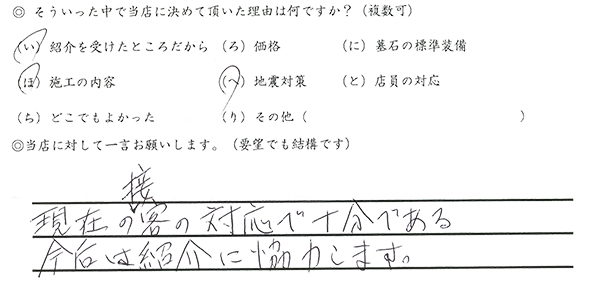 ◎ そういった中で当店に決めて頂いた理由は何ですか？（複数可）
（い）紹介を受けたところだから（ろ）価格　（に）墓石の標準装備
（ほ）施工の内容　（へ）地震対策　（と）店員の対応
（ち）どこでもよかった　（り）その他（　）
◎当店に対して一言お願いします。（要望でも結構です）
現在の接客の対応で十分である
今后は紹介に協力します。